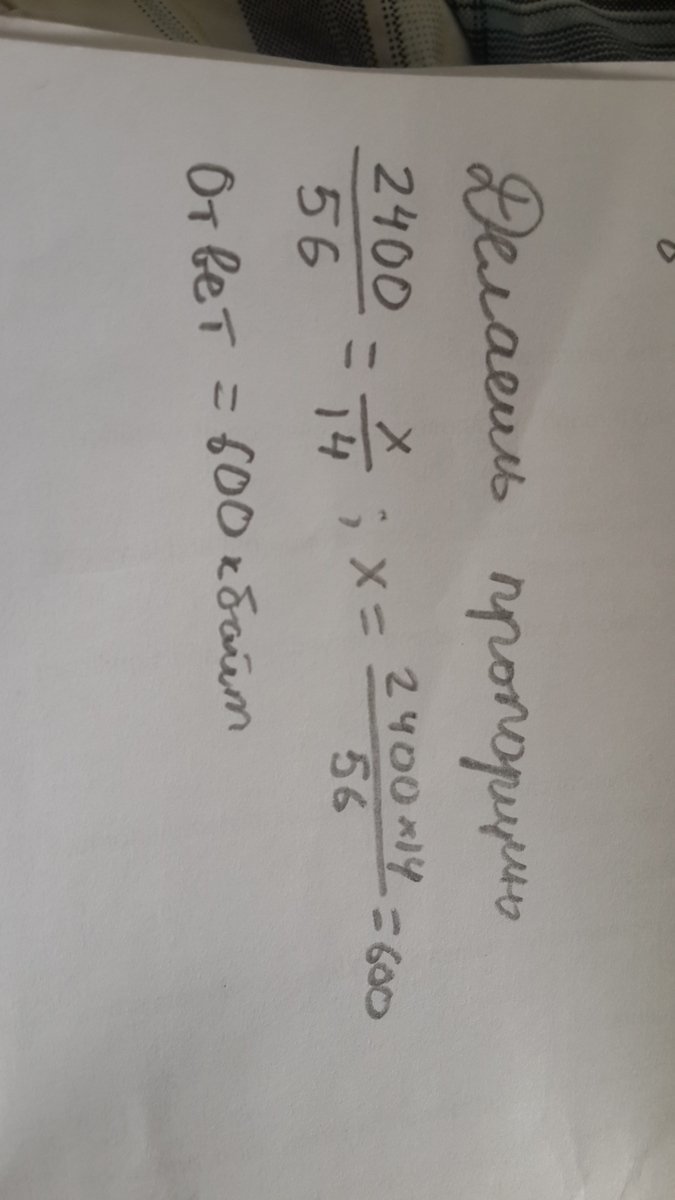 Делаешь пропорцию
2400/56 = x/14 ; x = 2400×14/56 = 600
Ответ = 600 кбайт